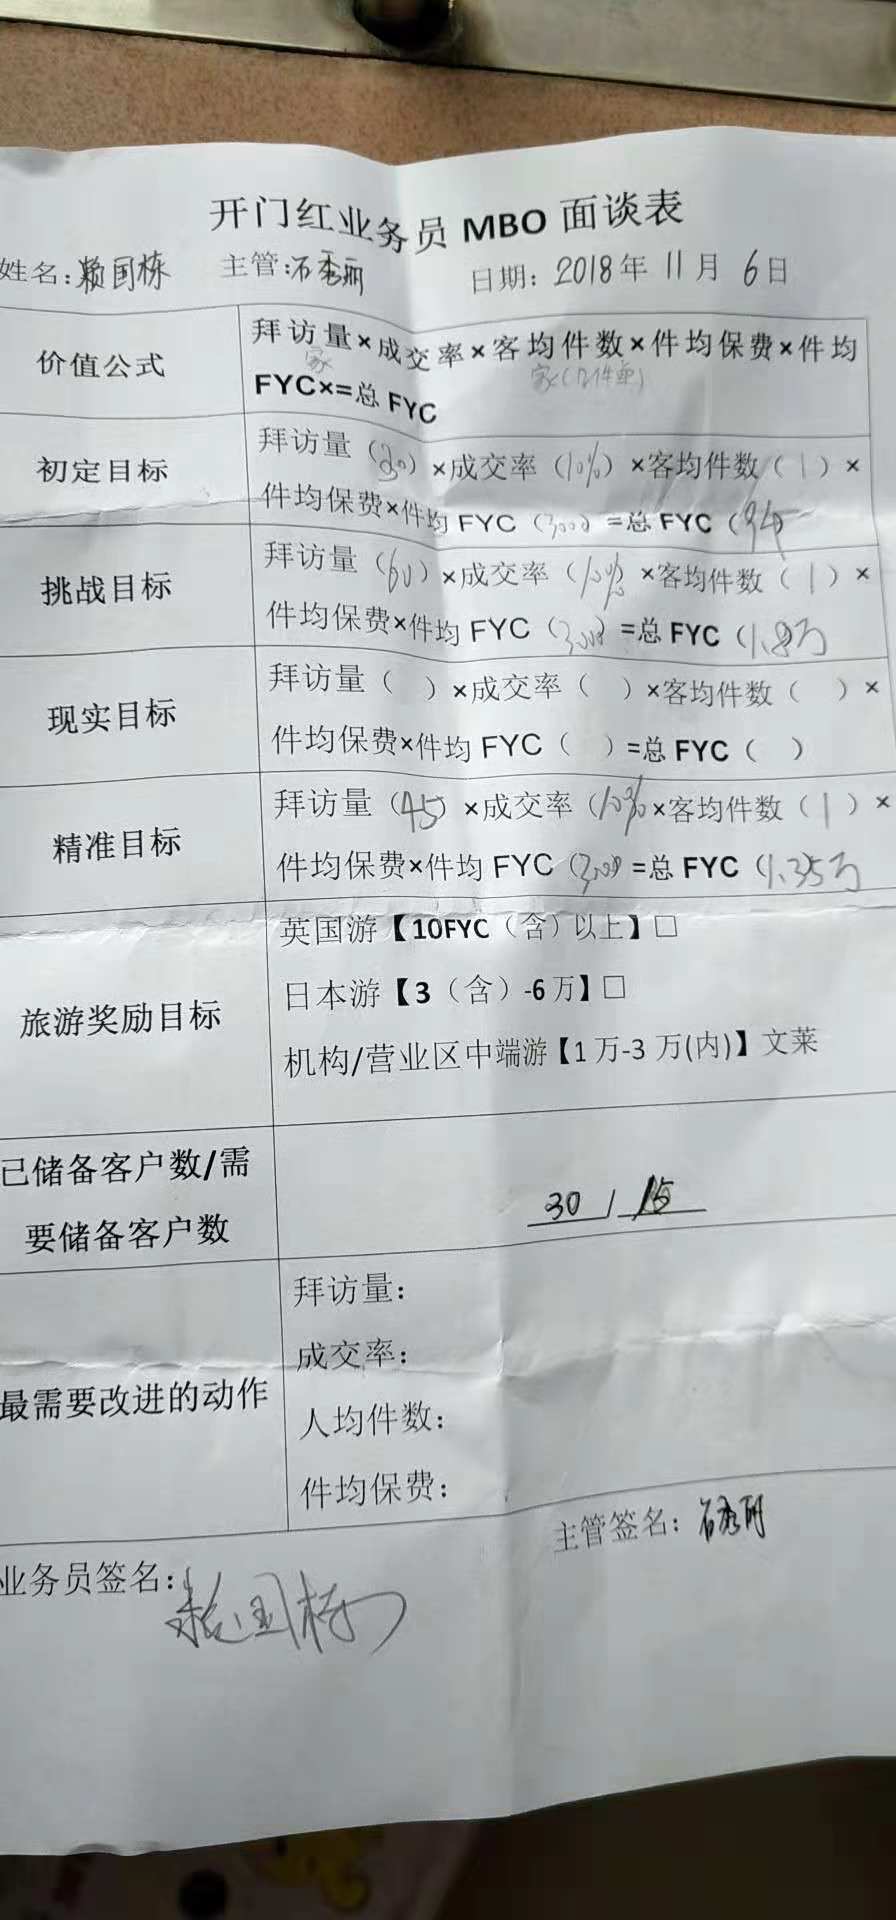 开门红业务员 MBO 面谈表
姓名:赖国栋 主管:石秀丽 日期: 2018年 11月 6日
价值公式
拜访量×成交率×客均件数×件均保费×件均
家
FYC×=总 FYC
初定目标
拜访量(30)×成交率(10%)×客均件数(1)×
件均保费×件均 FYC(3000)=总 FYC(
挑战目标
拜访量(60)×成交率(10%)×客均件数(1)×
件均保费×件均 FYC(3000)=总 FYC(1.8万
现实目标
拜访量( )×成交率( )×客均件数( )×
件均保费×件均 FYC( )=总 FYC( )
精准目标
拜访量(45)×成交率(10%×客均件数(1)×
件均保费×件均 FYC(3000=总 FYC(1.35万
旅游奖励目标
英国游【10FYC(含)以上】□
日本游【3(含)-6万】□
机构/营业区中端游【1万-3万(内)】文莱
已储备客户数/需
要储备客户数
30 / 15
最需要改进的动作
拜访量:
成交率:
人均件数:
件均保费:
业务员签名:赖国栋 主管签名:石秀丽